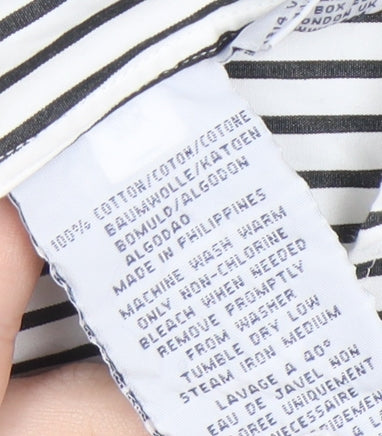 BOX
LONDON UK
100% COTTON/COTON/COTONE
BAUMWOLLE/KATOEN
BOMULD/ALGODON
ALGODAO
MADE IN PHILIPPINES
MACHINE WASH WARM
ONLY NON-CHLORINE
BLEACH WHEN NEEDED
REMOVE PROMPTLY
FROM WASHER
TUMBLE DRY LOW
STEAM IRON MEDIUM
LAVAGE A 40°
EAU DE JAVEL NON
UNIQUEMENT
NECESSAIRE